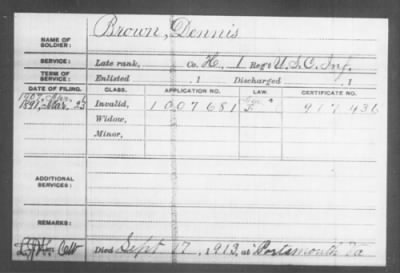 NAME OF SOLDIER: Brown, Dennis
SERVICE: Late rank, Co. H, 1 Reg't U.S.C. Inf.
TERM OF SERVICE: Enlisted , 1 Discharged , 1
DATE OF FILING. CLASS. APPLICATION NO. LAW. CERTIFICATE NO.
1891, Mar. 25 Invalid, 1007681 917436
Widow,
Minor,
ADDITIONAL SERVICES:
REMARKS:
Died Sept 17, 1913, at Portsmouth Va